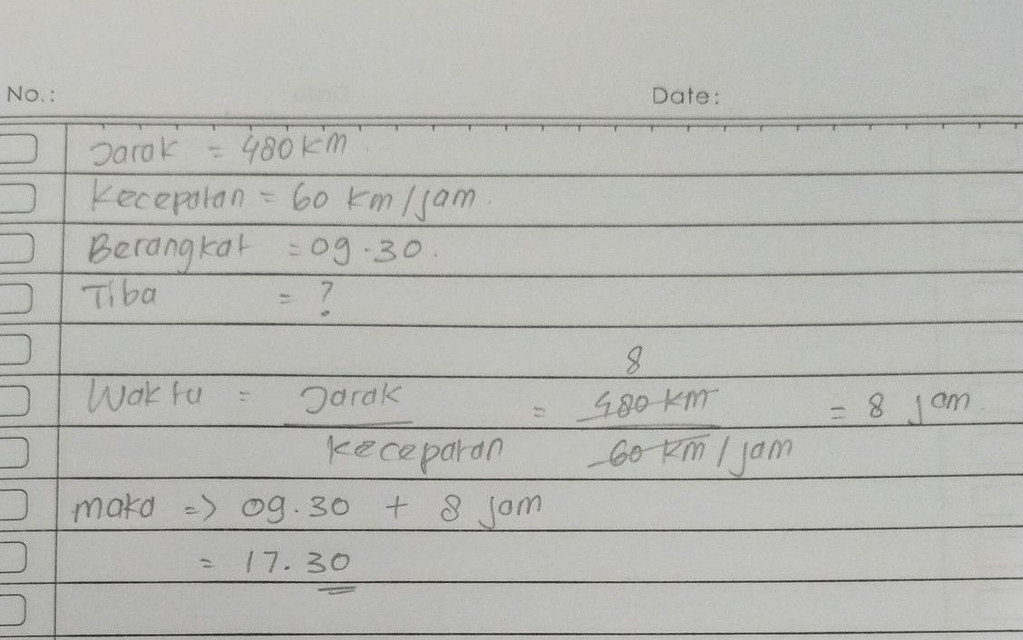 No.: Date:
Jarak = 480 km
Kecepatan = 60 km/jam.
Berangkat = 09.30.
Tiba = ?
8
Waktu = Jarak = 480 km = 8 jam
kecepatan 60 km/jam
maka => 09.30 + 8 jam
= 17.30